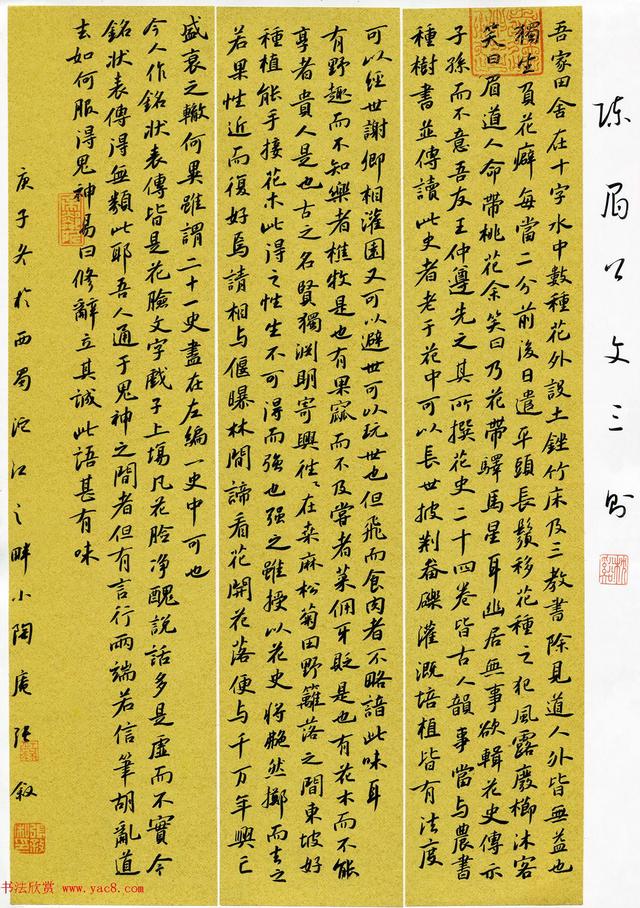 陳眉公文三則
吾家田舍在十字水中數種花外設土銼竹床及三教書除見道人外皆無益也
獨生負花癖每當二分前後日遣平頭長鬚移花種之犯風露廢櫛沐客
笑曰眉道人命帶桃花余笑曰乃花帶驛馬星耳幽居無事欲輯花史傳示
子孫而不意吾友王仲遵先之其所撰花史二十四卷皆古人韻事當与農書
種樹書並傳讀此史者老于花中可以長世披荆畚礫灌溉培植皆有法度
可以經世謝卿相灌園又可以避世可以玩世也但飛而食肉者不略諳此味耳
有野趣而不知樂者樵牧是也有果窳而不及嘗者菜佣牙販是也有花木而不能
享者貴人是也古之名賢獨淵明寄興往〻在桑麻松菊田野籬落之間東坡好
種植能手接花木此得之性生不可得而強也强之雖授以花史將艴然擲而去之
若果性近而復好焉請相与偃曝林間諦看花開花落便与千万年興亡
盛衰之轍何異雖謂二十一史盡在左編一史中可也
今人作銘狀表傳皆是花臉文字戲子上塲凡花臉净醜説話多是虛而不實今
銘狀表傳得無類此耶吾人通于鬼神之間者但有言行兩端若信筆胡亂道
去如何服得鬼神易曰修辭立其誠此語甚有味
庚子冬於西蜀沱江之畔小陶廣張叙
书法欣赏 www.yac8.com